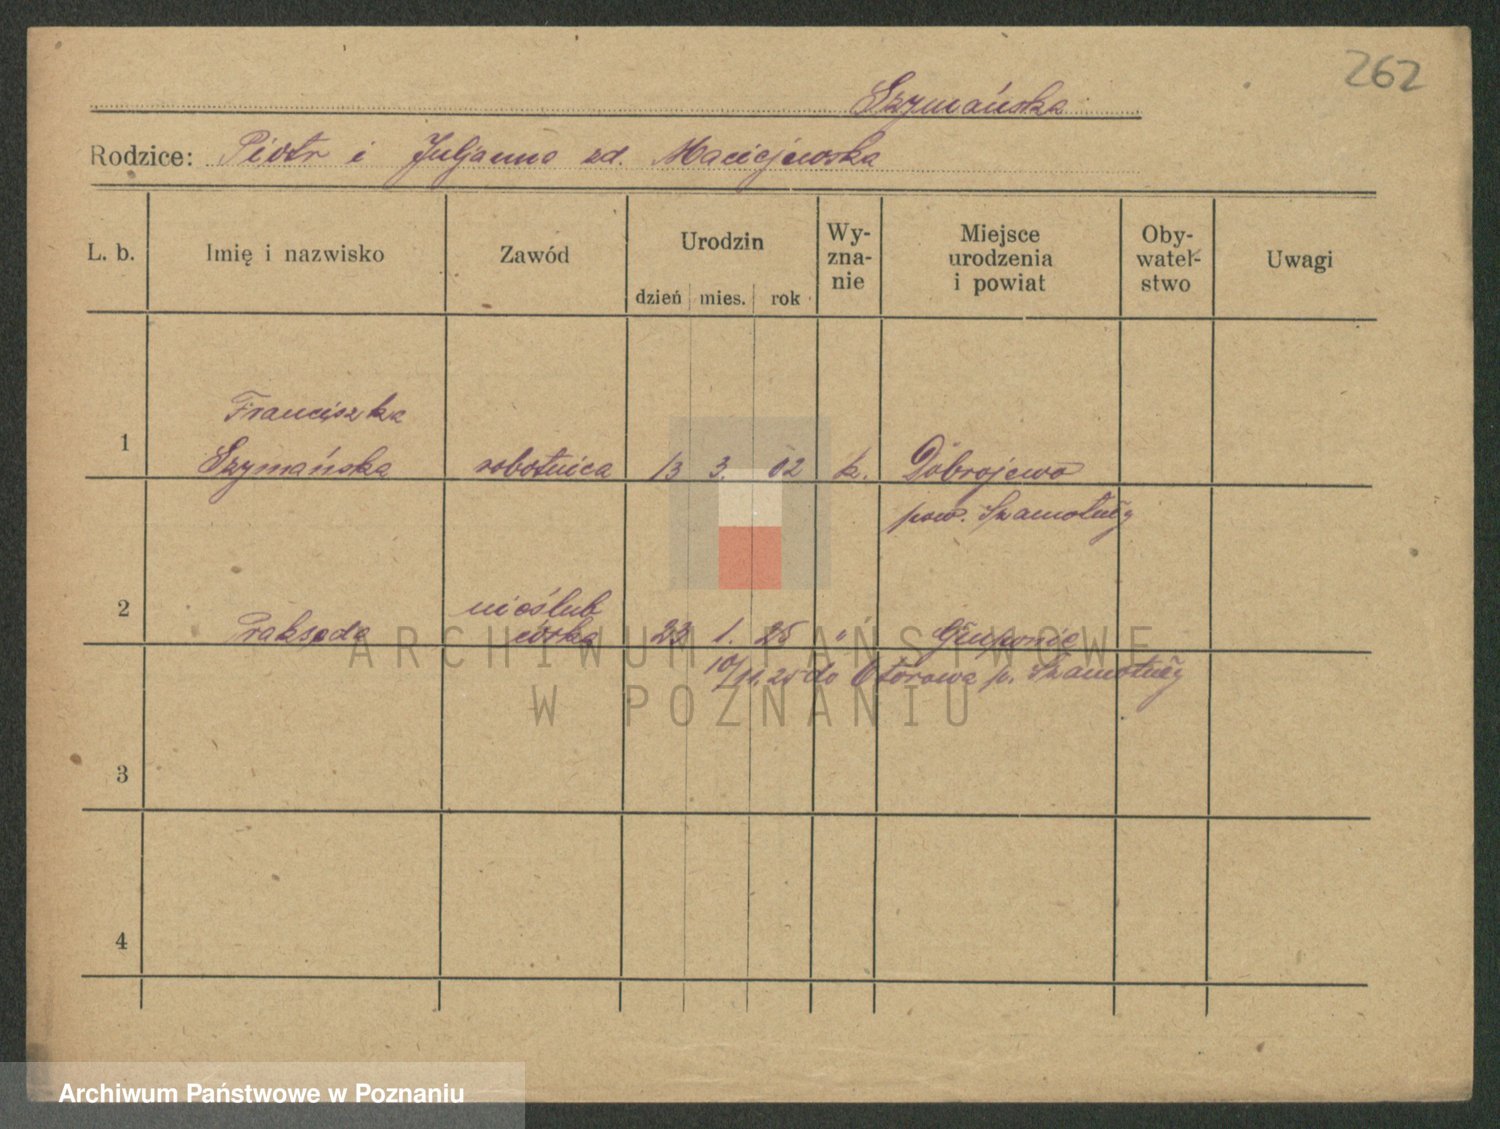 262
Szymańska
Rodzice: Piotr i Juljanna zd. Maciejewska
L. b. Imię i nazwisko Zawód Urodzin dzień mies. rok Wy-zna-nie Miejsce urodzenia i powiat Oby-watel-stwo Uwagi
Franciszka
1 Szymańska robotnica 13 3. 02 k. Dobrojewo
pow. Szamotuły
nieślub
2 Prakseda córka 23 1. 25 " Głuponie
10/11. 25 do Otorowa p. Szamotuły
3
4
ARCHIWUM PAŃSTWOWE
W POZNANIU
Archiwum Państwowe w Poznaniu